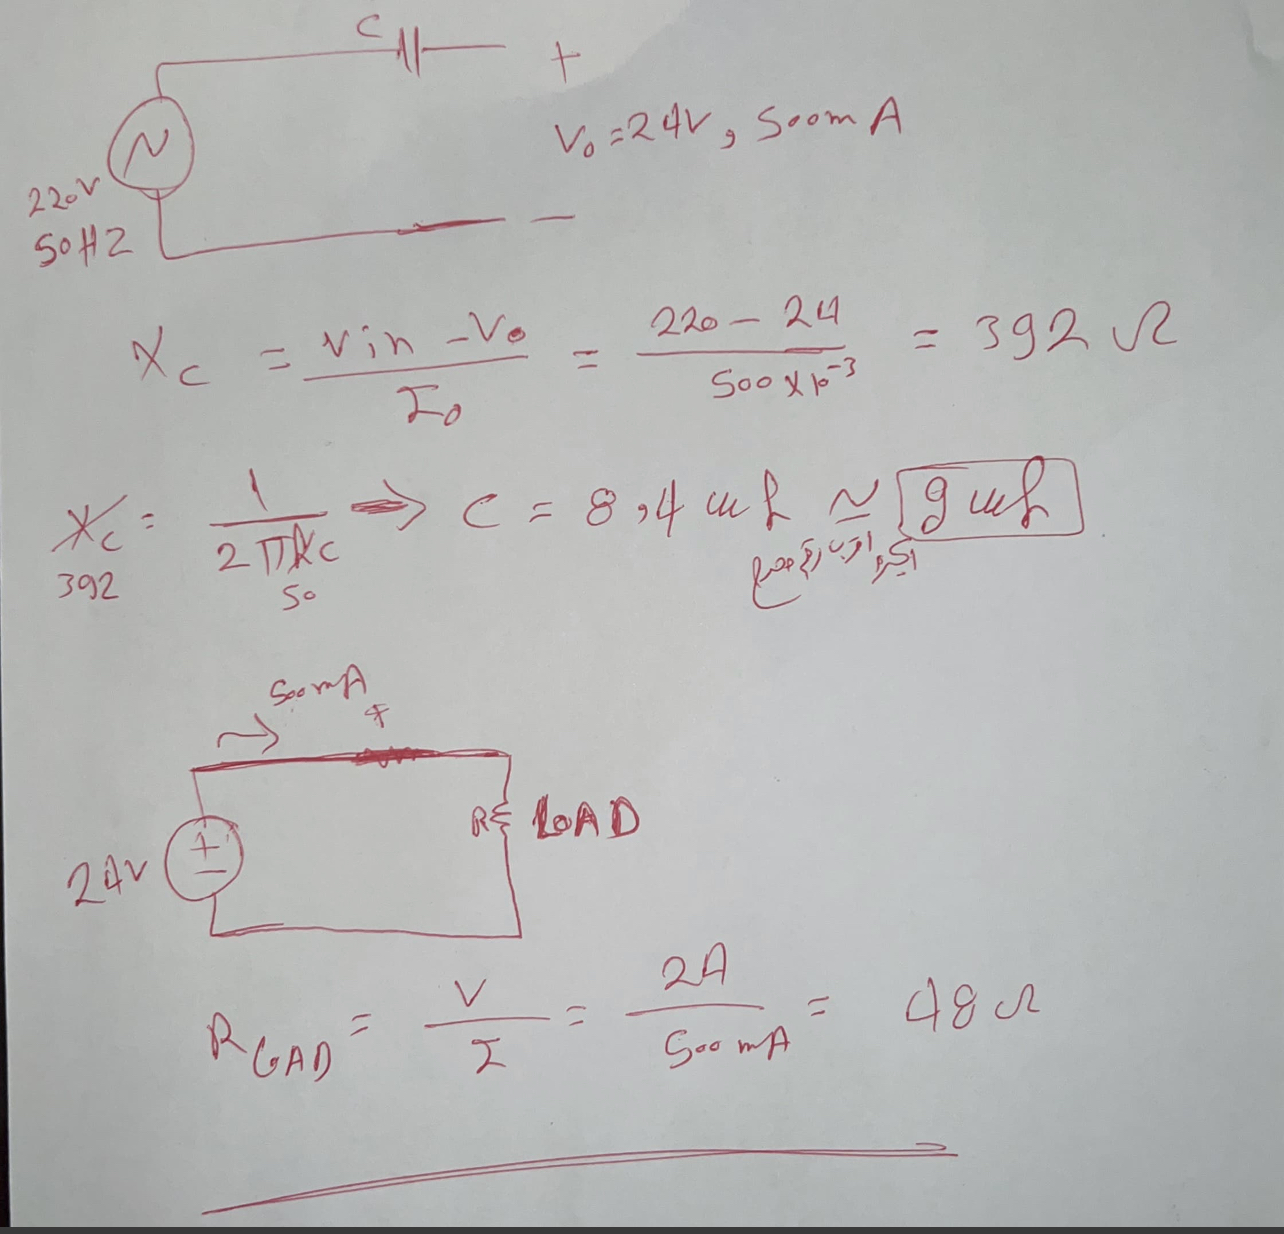 C
+
V₀ = 24V, 500mA
220V
50HZ
−
Xc = Vin - Vo / Io = 220 - 24 / 500 x 10⁻³ = 392 Ω
Xc = 1 / 2πfc ⇒ C = 8,4 uf ≃ 9 uf
392
50
500mA
+
24V
+
−
R LOAD
R LOAD = V / I = 24 / 500 mA = 48 Ω